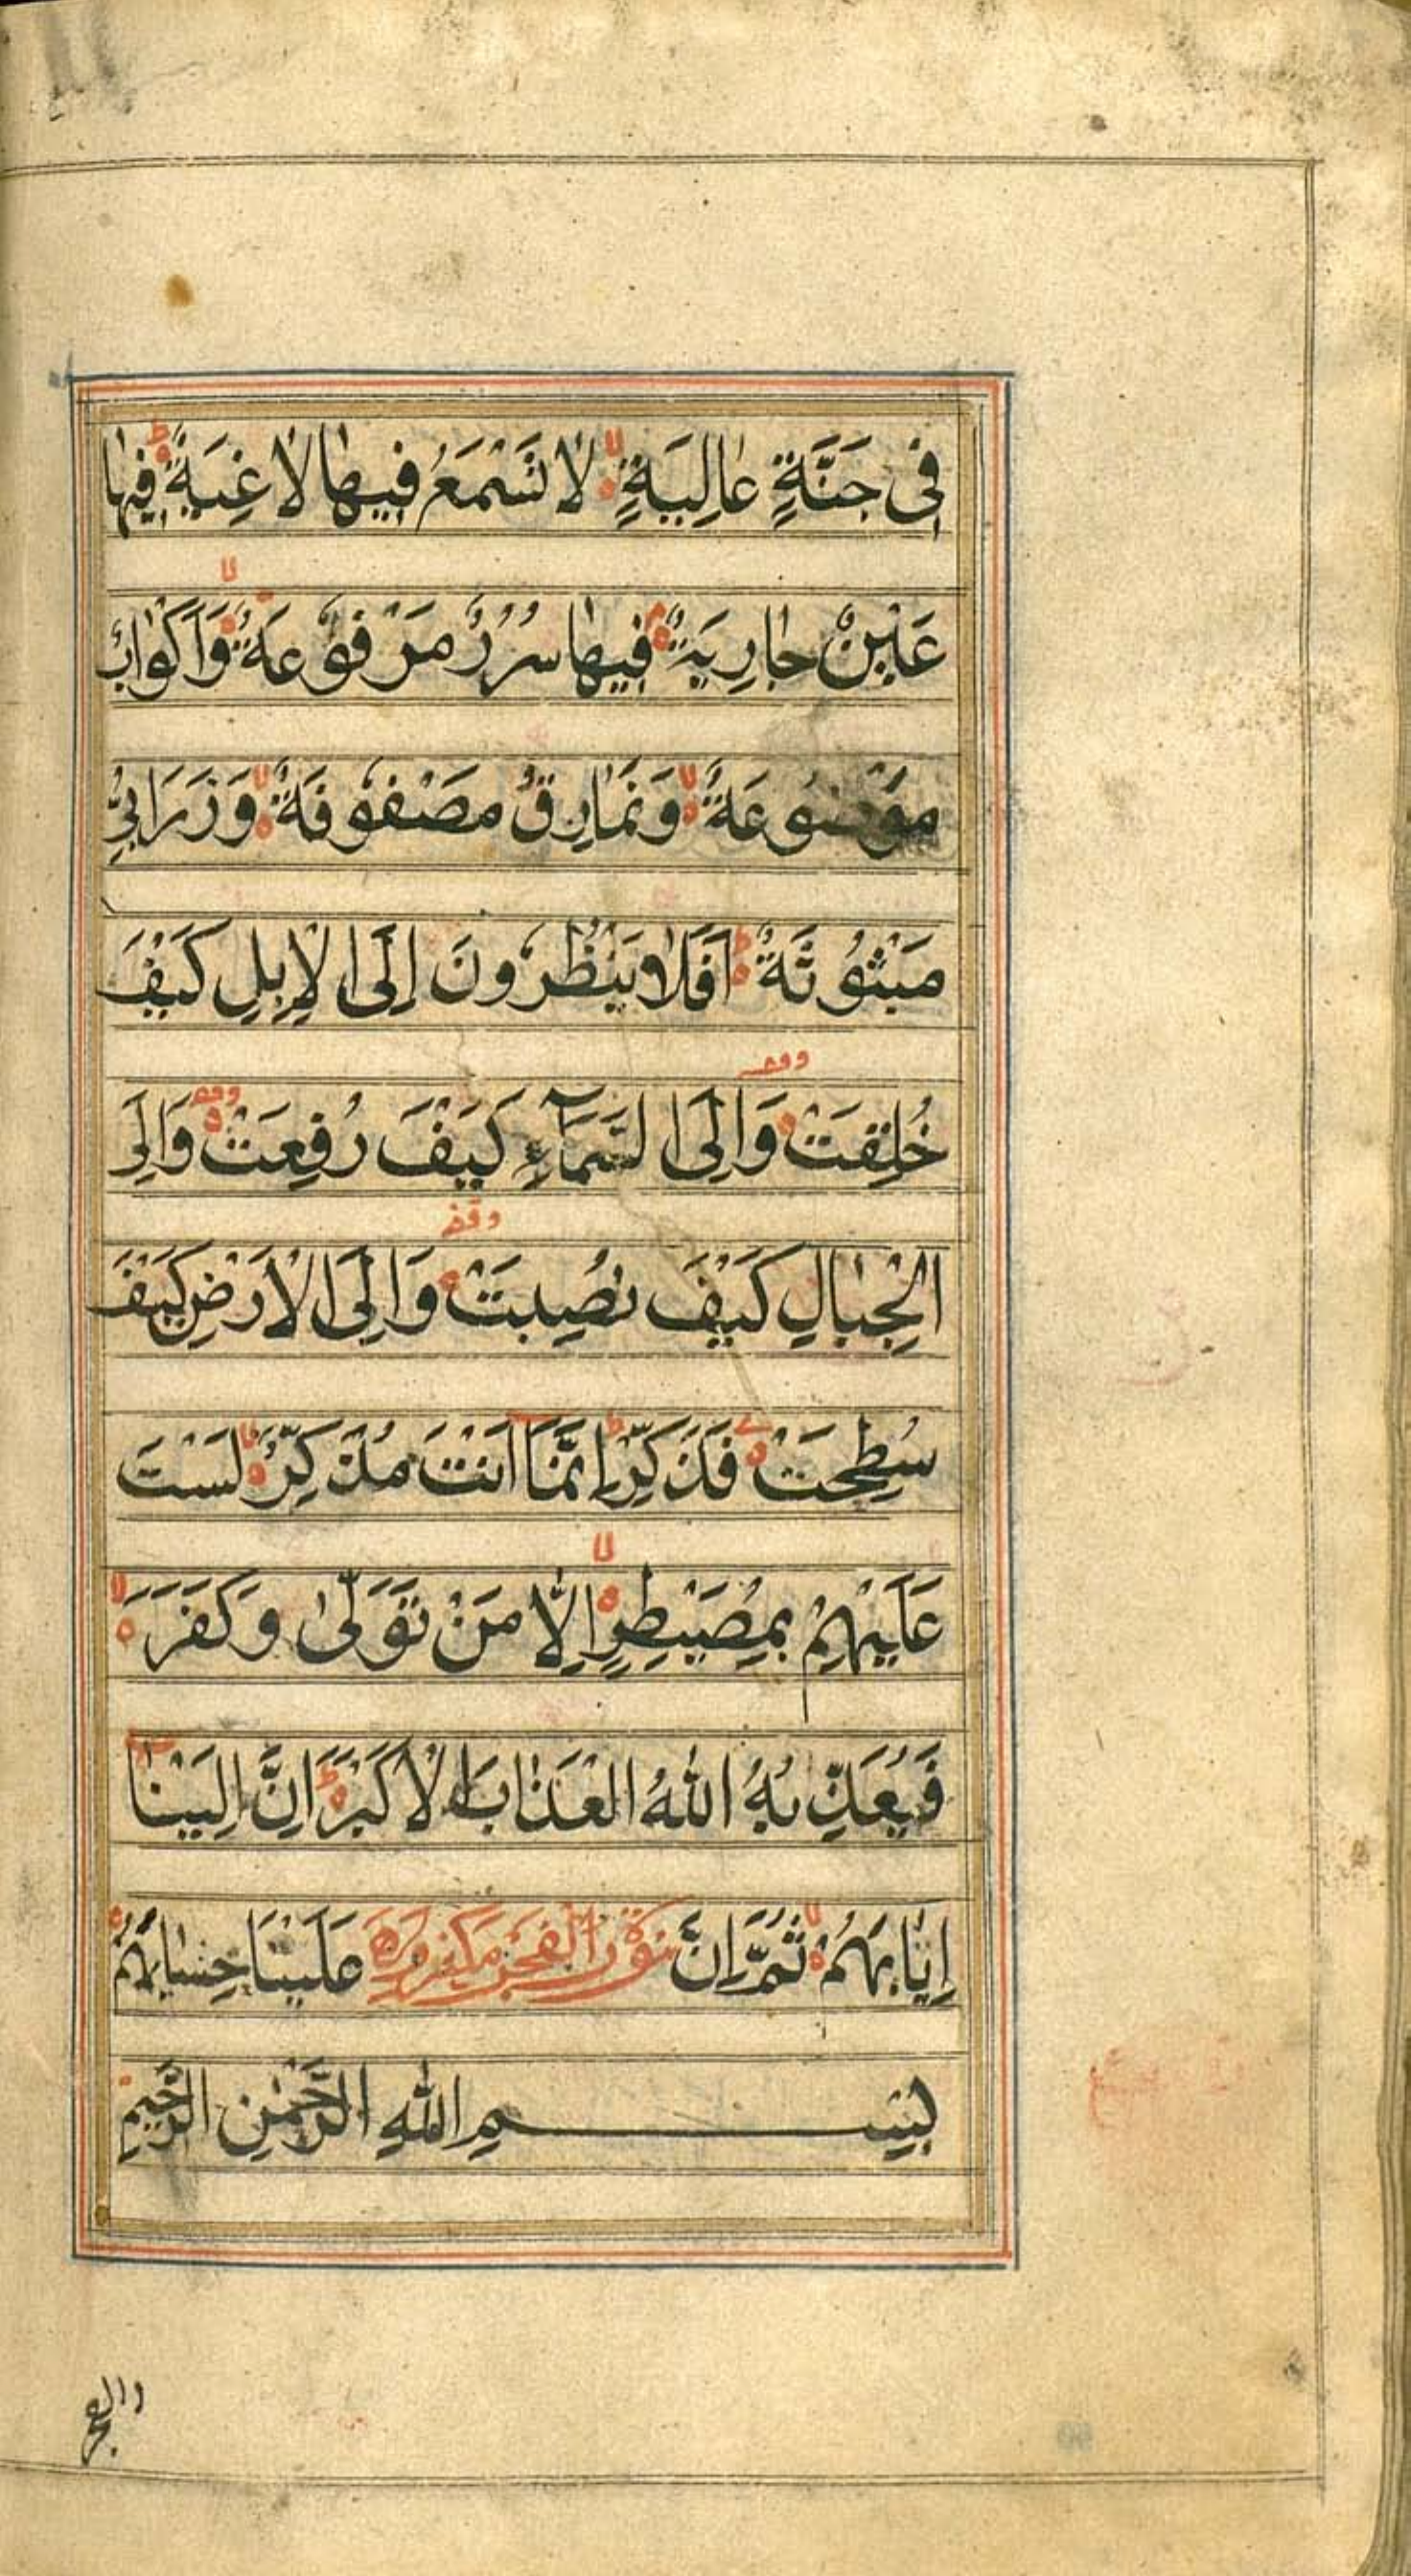 فِى جَنَّةٍ عَالِيَةٍ لَا تَسْمَعُ فِيهَا لَاغِيَةً فِيهَا
عَيْنٌ جَارِيَةٌ فِيهَا سُرُرٌ مَرْفُوعَةٌ وَأَكْوَابٌ
مَوْضُوعَةٌ وَنَمَارِقُ مَصْفُوفَةٌ وَزَرَابِىُّ
مَبْثُوثَةٌ اَفَلَا يَنْظُرُونَ اِلَى الْاِبِلِ كَيْفَ
خُلِقَتْ وَاِلَى السَّمَآءِ كَيْفَ رُفِعَتْ وَاِلَى
الْجِبَالِ كَيْفَ نُصِبَتْ وَاِلَى الْاَرْضِ كَيْفَ
سُطِحَتْ فَذَكِّرْ اِنَّمَا اَنْتَ مُذَكِّرٌ لَسْتَ
عَلَيْهِمْ بِمُصَيْطِرٍ اِلَّا مَنْ تَوَلّٰى وَكَفَرَ
فَيُعَذِّبُهُ اللّٰهُ الْعَذَابَ الْاَكْبَرَ اِنَّ اِلَيْنَا
اِيَابَهُمْ ثُمَّ اِنَّ سورة الفجر مكية عَلَيْنَا حِسَابَهُمْ
بِسْمِ اللّٰهِ الرَّحْمٰنِ الرَّحِيمِ
والفجر